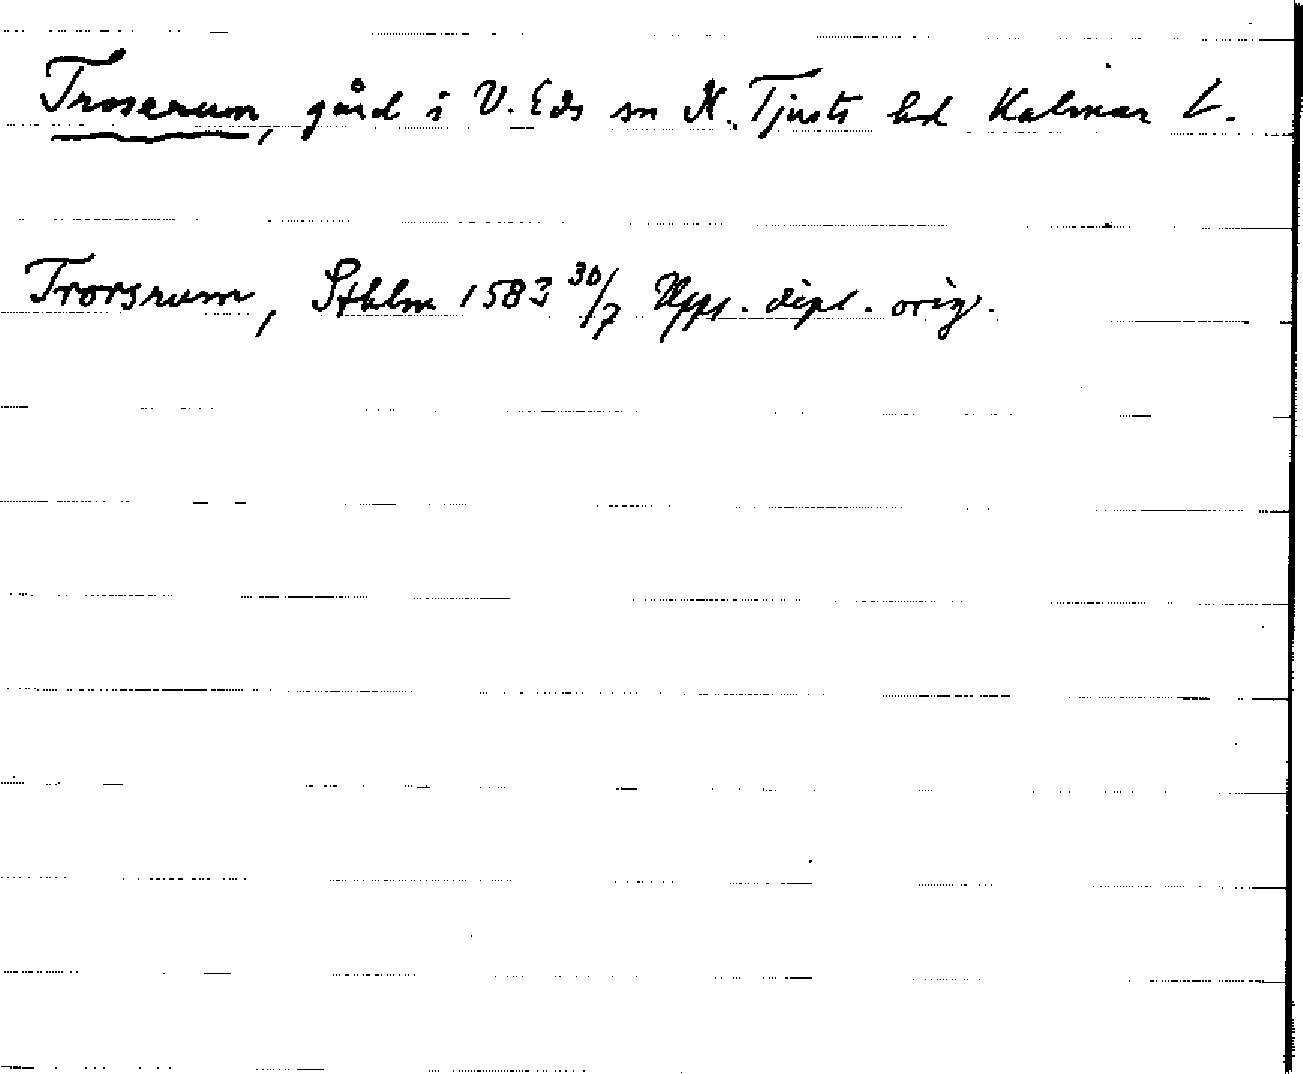 Troserum, gård i V. Eds sn N. Tjusts hd Kalmar L.
Trorsrum, Sthlm 1583 30/7 Upps. dipl. orig.